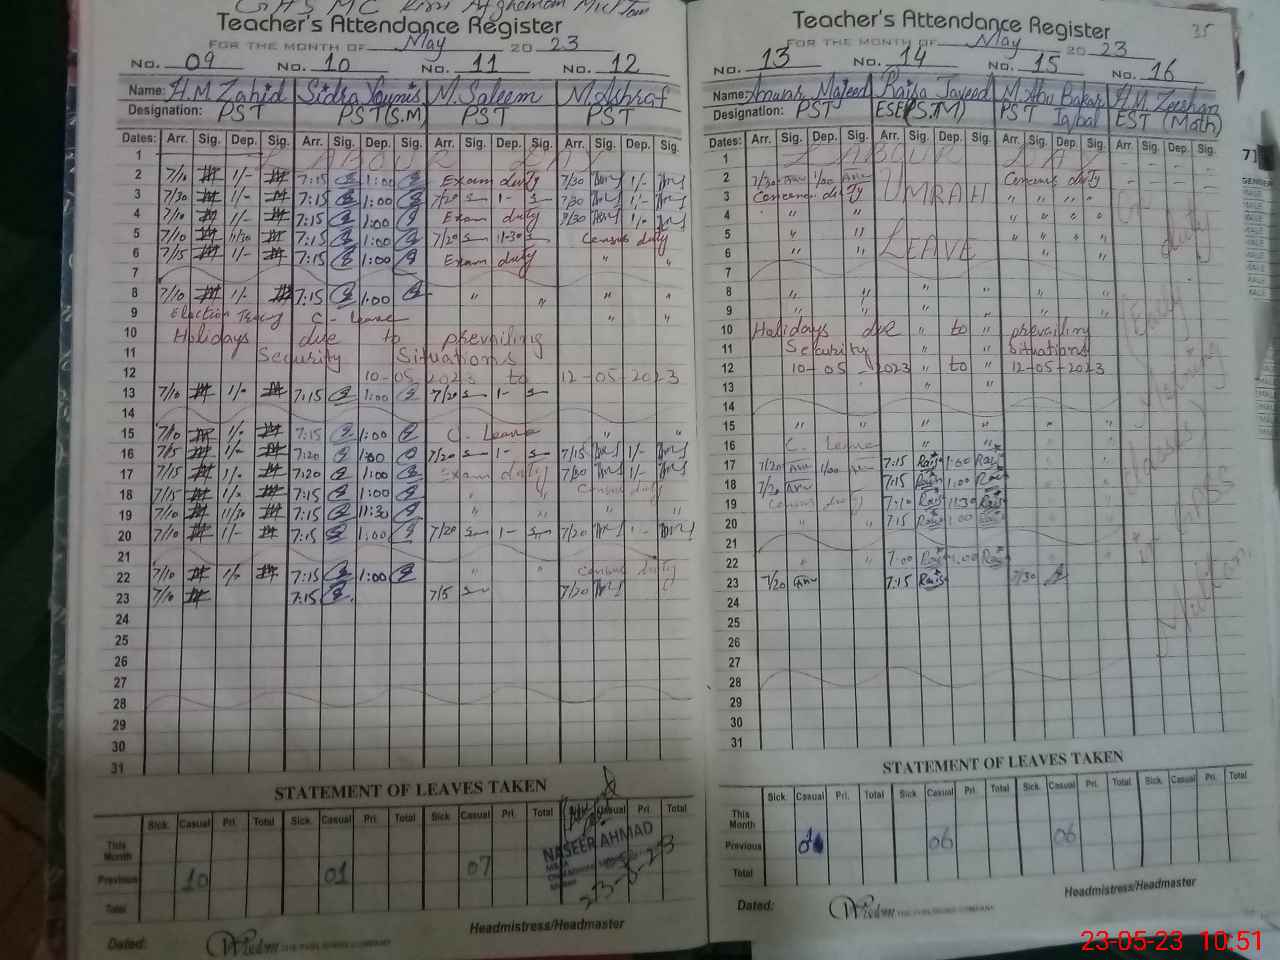 Teacher's Attendance Register
FOR THE MONTH OF May 20 23
No. 09 No. 10 No. 11 No. 12
Name: H.M Zahid Sidra Younis M. Saleem M. Ashraf
Designation: PST PST(S.M) PST PST
Dates: Arr. Sig. Dep. Sig. Arr. Sig. Dep. Sig. Arr. Sig. Dep. Sig. Arr. Sig. Dep. Sig.
1 LABOUR DAY
2 7/10 1/- 7:15 1:00 Exam duty 7/30 1/-
3 7/30 1/- 7:15 1:00 7/20 1- 7/30 1/-
4 7/10 1/- 7:15 1:00 Exam duty 7/30 1/-
5 7/10 11/30 7:15 1:00 7/20 11-30 Census duty
6 7/15 1/- 7:15 1:00 Exam duty " "
7
8 7/10 1/- 7:15 1:00 " " " "
9 Election C - Leave " "
10 Holidays due to prevailing
11 Security Situations
12 10-05-2023 to 12-05-2023
13 7/10 1/- 7:15 1:00 7/20 1-
14
15 7/10 1/- 7:15 1:00 C. Leave " "
16 7/5 1/- 7:20 1:00 7/20 1- 7/15 1/-
17 7/15 1/- 7:20 1:00 Exam duty 7/30 1/-
18 7/15 1/- 7:15 1:00 " " Census duty
19 7/10 11/30 7:15 11:30 " " " "
20 7/10 1/- 7:15 1:00 7/20 1- 7/20 1-
21
22 7/10 1/- 7:15 1:00 " " Census duty
23 7/10 7:15 7/5 7/20
24
25
26
27
28
29
30
31
STATEMENT OF LEAVES TAKEN
Sick. Casual Pri. Total Sick. Casual Pri. Total Sick. Casual Pri. Total Casual Pri. Total
This Month
Previous 10 01 07
Total
NASEER AHMAD
23-5-23
Headmistress/Headmaster
Dated:
Wisdom THE PUBLISHING COMPANY
35
Teacher's Attendance Register
FOR THE MONTH OF May 20 23
No. 13 No. 14 No. 15 No. 16
Name: Anwar Majeed Raisa Javeed M. Abu Bakar Iqbal H.M. Zeeshan
Designation: PST ESE(S.M) PST EST (Math)
Dates: Arr. Sig. Dep. Sig. Arr. Sig. Dep. Sig. Arr. Sig. Dep. Sig. Arr. Sig. Dep. Sig.
1 LABOUR DAY
2 7/30 1/00 UMRAH Census duty
3 Census duty " " " "
4 " " " " " "
5 " " LEAVE " " " "
6 " " " "
7
8 " " " "
9 " " "
10 Holidays due " to " prevailing
11 Security " " Situations
12 10-05-2023 " to " 12-05-2023
13 " "
14
15 " " " "
16 C. Leave " "
17 7/20 1/00 7:15 1:00
18 7/20 7:15 1:00
19 Census duty 7:10 11:30
20 " " 7:15 1:00
21
22 " " 7:00 1:00
23 7/20 7:15 7/30
24
25
26
27
28
29
30
31
On duty (Early Morning classes)
STATEMENT OF LEAVES TAKEN
Sick. Casual Pri. Total Sick. Casual Pri. Total Sick. Casual Pri. Total Sick. Casual Pri. Total
This Month
Previous 06 06
Total
Headmistress/Headmaster
Dated:
Wisdom THE PUBLISHING COMPANY
23-05-23 10:51